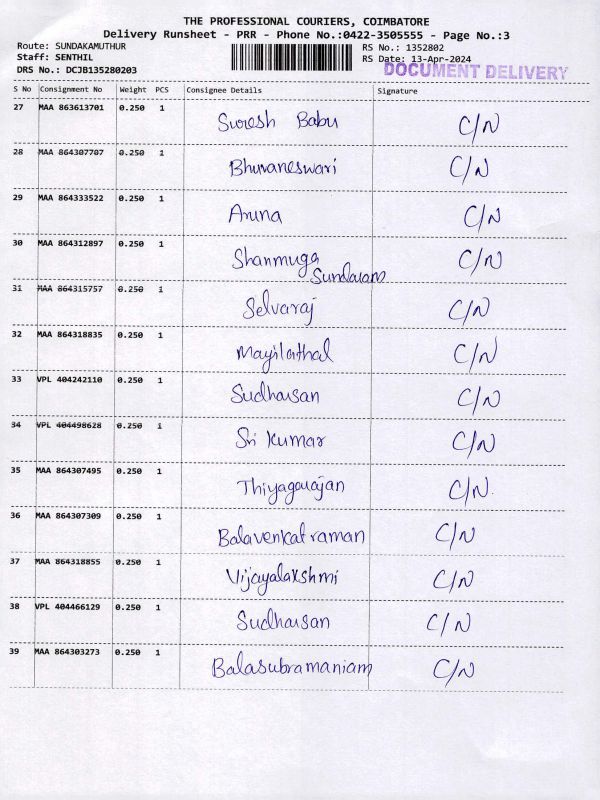 THE PROFESSIONAL COURIERS, COIMBATORE
Delivery Runsheet - PRR - Phone No.:0422-3505555 - Page No.:3
Route: SUNDAKAMUTHUR RS No.: 1352802
Staff: SENTHIL RS Date: 13-Apr-2024
DRS No.: DCJB135280203 DOCUMENT DELIVERY
S No Consignment No Weight PCS Consignee Details Signature
27 MAA 863613701 0.250 1 Suresh Babu C/N
28 MAA 864307707 0.250 1 Bhuvaneswari C/N
29 MAA 864333522 0.250 1 Aruna C/N
30 MAA 864312897 0.250 1 Shanmuga C/N
Sundaram
31 MAA 864315757 0.250 1 Selvaraj C/N
32 MAA 864318835 0.250 1 Mayilathal C/N
33 VPL 404242110 0.250 1 Sudharsan C/N
34 VPL 404498628 0.250 1 Sri Kumar C/N
35 MAA 864307495 0.250 1 Thiyagarajan C/N.
36 MAA 864307309 0.250 1 Balavenkatraman C/N
37 MAA 864318855 0.250 1 Vijayalakshmi C/N
38 VPL 404466129 0.250 1 Sudharsan C/N
39 MAA 864303273 0.250 1 Balasubramaniam C/N